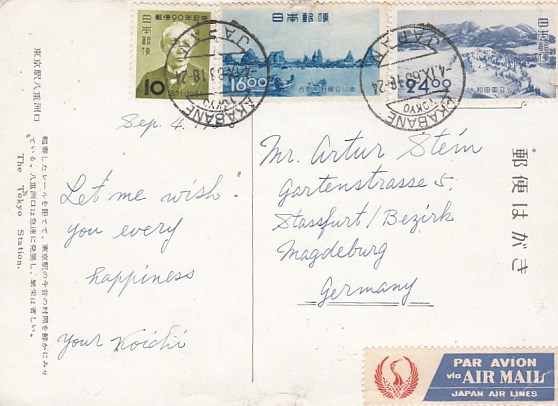 東京駅八重洲口
The Tokyo Station.
郵便はがき
日本郵便
10
日本郵便
16.00
日本郵便
24.00
AKABANE
TOKYO
JAPAN
AKABANE
TOKYO
JAPAN
Sep. 4.
Let me wish
you every
happiness
your Koichi
Mr. Artur Stein
Gartenstrasse 5.
Stassfurt/Bezirk
Magdeburg
Germany
PAR AVION
via AIR MAIL
JAPAN AIR LINES